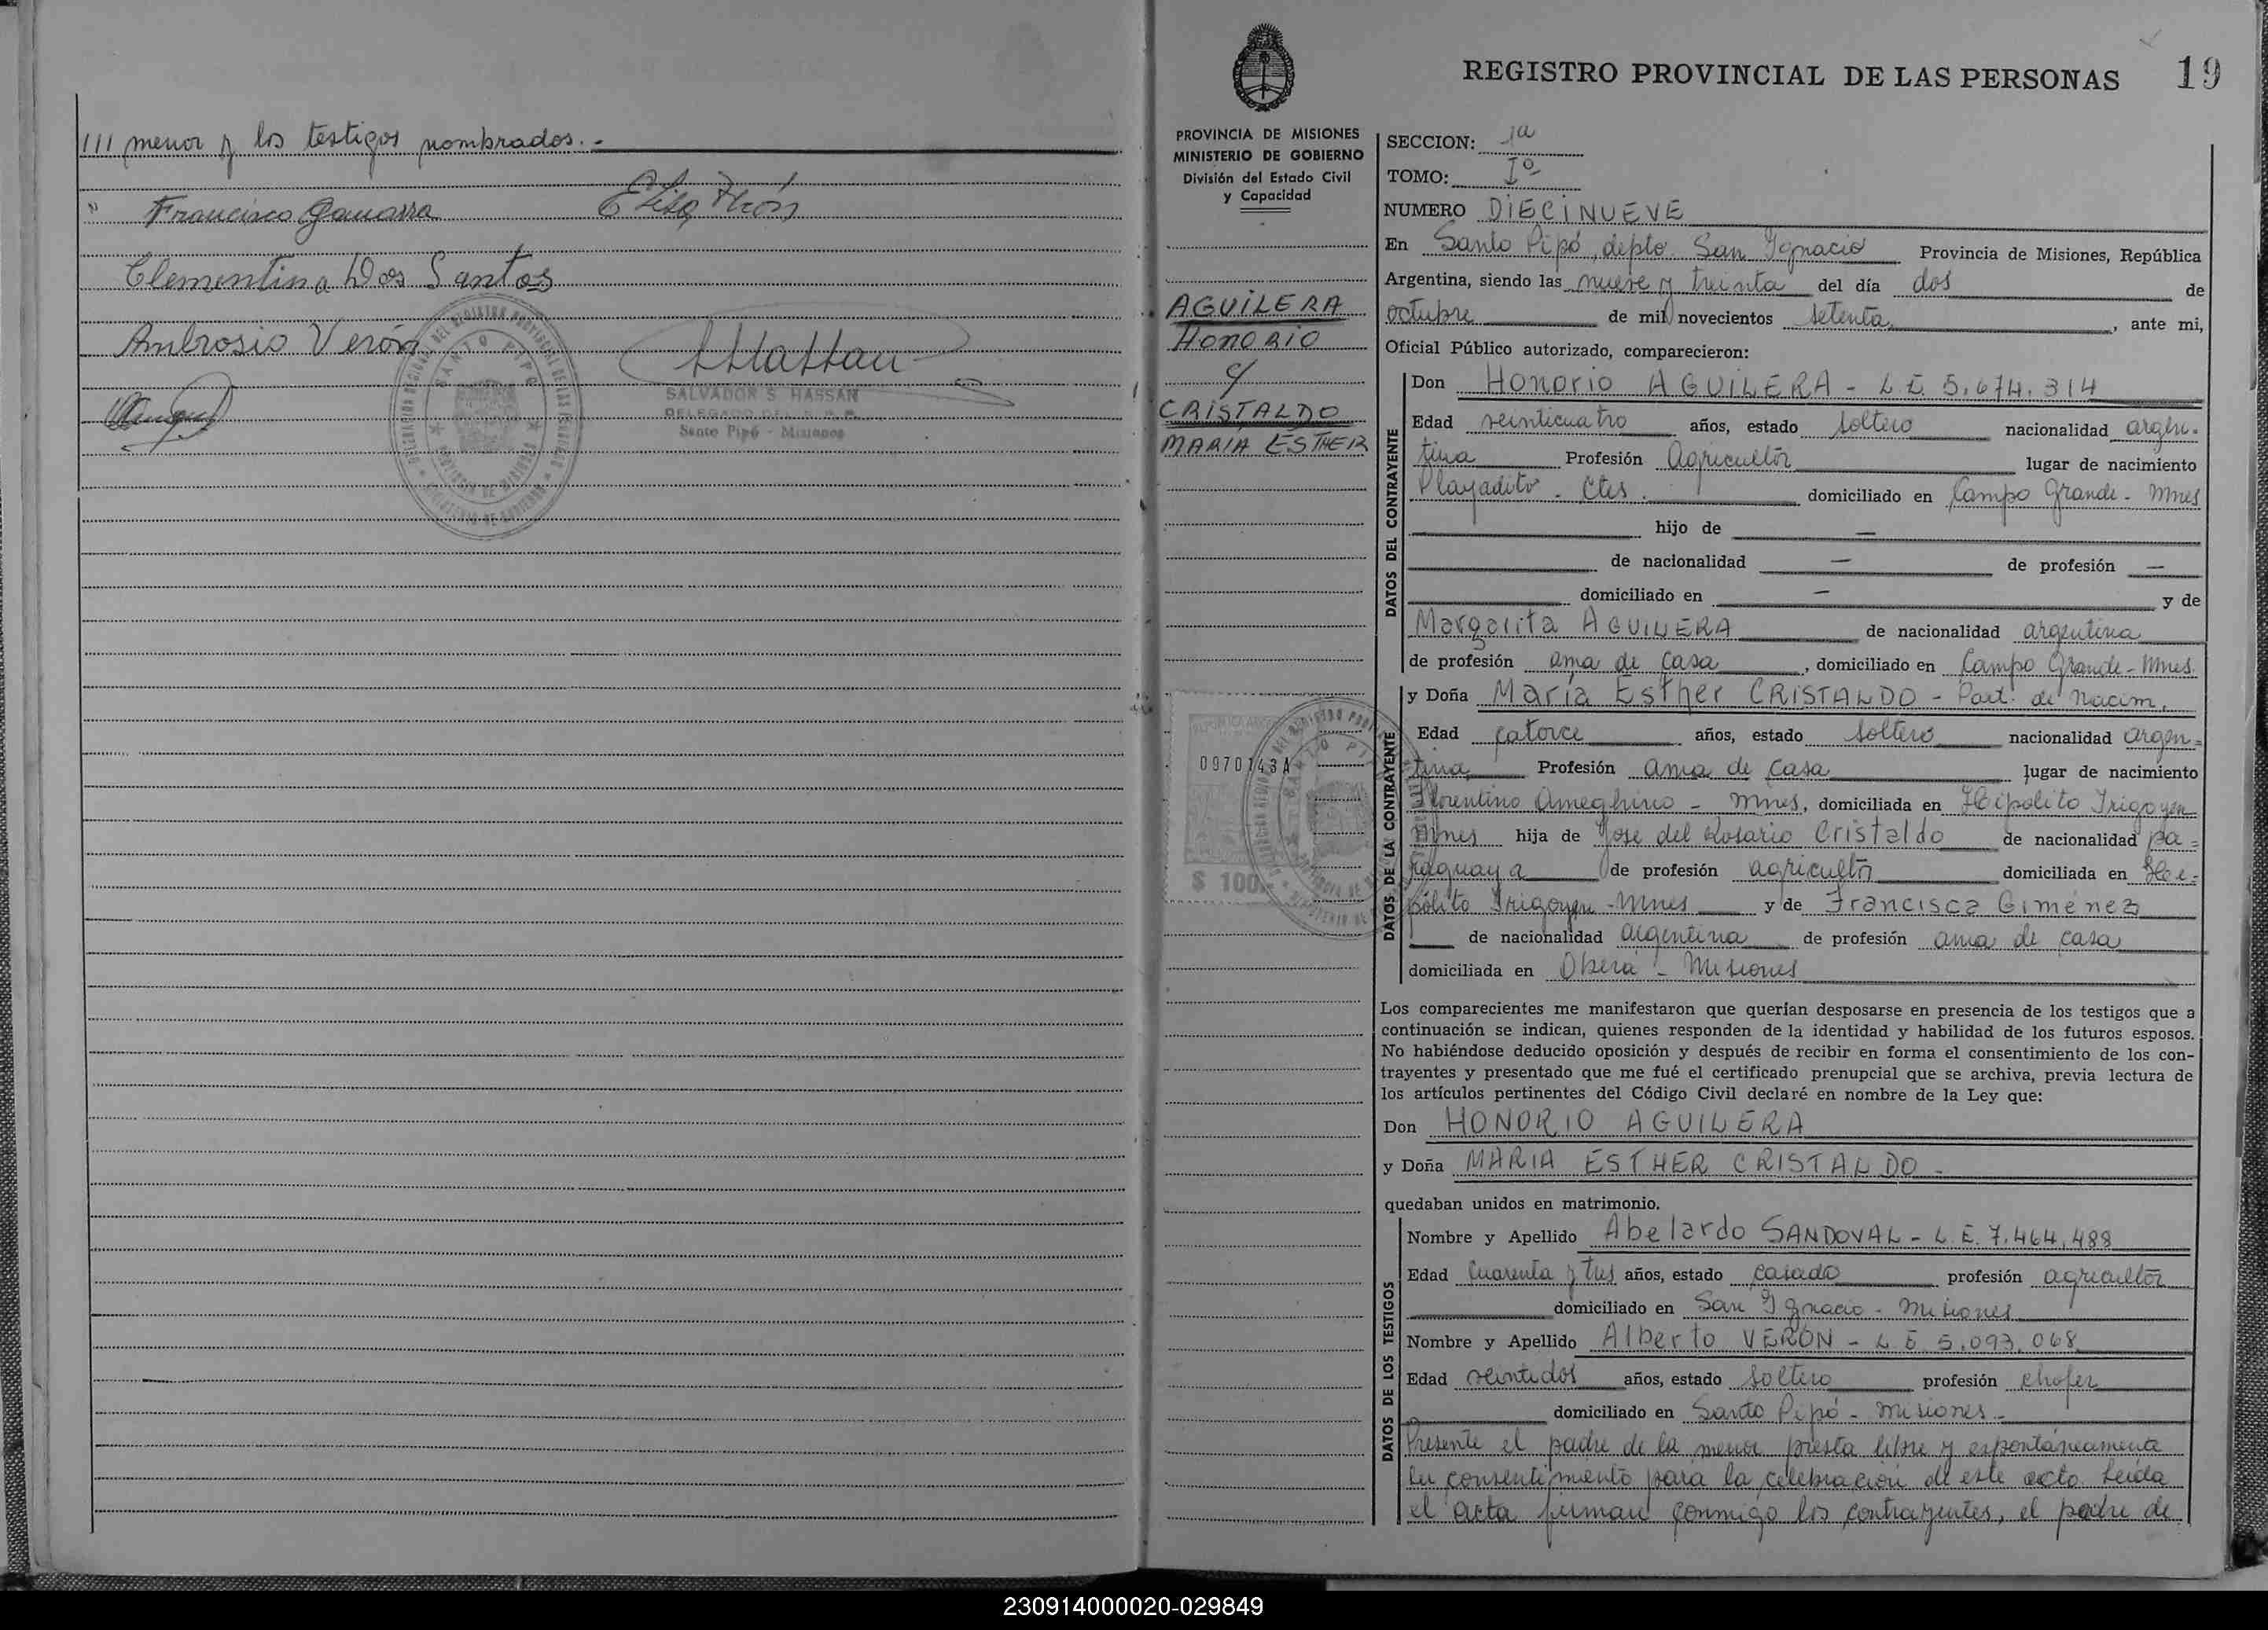 /// menor y los testigos nombrados.-
" Francisco Gamarra
Clementina Dos Santos
Ambrosio Verón
SALVADOR S. HASSAN
DELEGADO DEL R. P. P.
Santo Pipó - Misiones
REGISTRO PROVINCIAL DE LAS PERSONAS 19
PROVINCIA DE MISIONES
MINISTERIO DE GOBIERNO
División del Estado Civil
y Capacidad
AGUILERA
HONORIO
y
CRISTALDO
MARIA ESTHER
0970143A
$ 100.-
SECCION: 1a
TOMO: Iº
NUMERO DIECINUEVE
En Santo Pipó, depto. San Ignacio Provincia de Misiones, República
Argentina, siendo las nueve y treinta del día dos de
octubre de mil novecientos setenta, ante mi,
Oficial Público autorizado, comparecieron:
DATOS DEL CONTRAYENTE
Don Honorio AGUILERA - L.E. 5.674.314
Edad veinticuatro años, estado soltero nacionalidad argen-
tina Profesión Agricultor lugar de nacimiento
Playadito - Ctes. domiciliado en Campo Grande - Mnes
hijo de —
de nacionalidad — de profesión —
domiciliado en — y de
Margarita AGUILERA de nacionalidad argentina
de profesión ama de casa, domiciliado en Campo Grande - Mnes.
DATOS DE LA CONTRAYENTE
y Doña María Esther CRISTALDO - Part. de Nacim.
Edad catorce años, estado soltero nacionalidad argen-
tina Profesión ama de casa lugar de nacimiento
Florentino Ameghino - Mnes, domiciliada en Hipólito Irigoyen
Mnes hija de José del Rosario Cristaldo de nacionalidad pa-
raguaya de profesión agricultor domiciliada en Hi-
pólito Irigoyen - Mnes y de Francisca Giménez
de nacionalidad argentina de profesión ama de casa
domiciliada en Oberá - Misiones
Los comparecientes me manifestaron que querían desposarse en presencia de los testigos que a
continuación se indican, quienes responden de la identidad y habilidad de los futuros esposos.
No habiéndose deducido oposición y después de recibir en forma el consentimiento de los con-
trayentes y presentado que me fué el certificado prenupcial que se archiva, previa lectura de
los artículos pertinentes del Código Civil declaré en nombre de la Ley que:
Don HONORIO AGUILERA
y Doña MARIA ESTHER CRISTALDO -
quedaban unidos en matrimonio.
DATOS DE LOS TESTIGOS
Nombre y Apellido Abelardo SANDOVAL - L.E. 7.464.488
Edad cuarenta y tres años, estado casado profesión agricultor
domiciliado en San Ignacio - Misiones
Nombre y Apellido Alberto VERON - L.E. 5.093.068
Edad veintidos años, estado soltero profesión chofer
domiciliado en Santo Pipó - Misiones -
Presente el padre de la menor presta libre y espontáneamente
su consentimiento para la celebración de este acto. Leída
el acta firman conmigo los contrayentes, el padre de
230914000020-029849